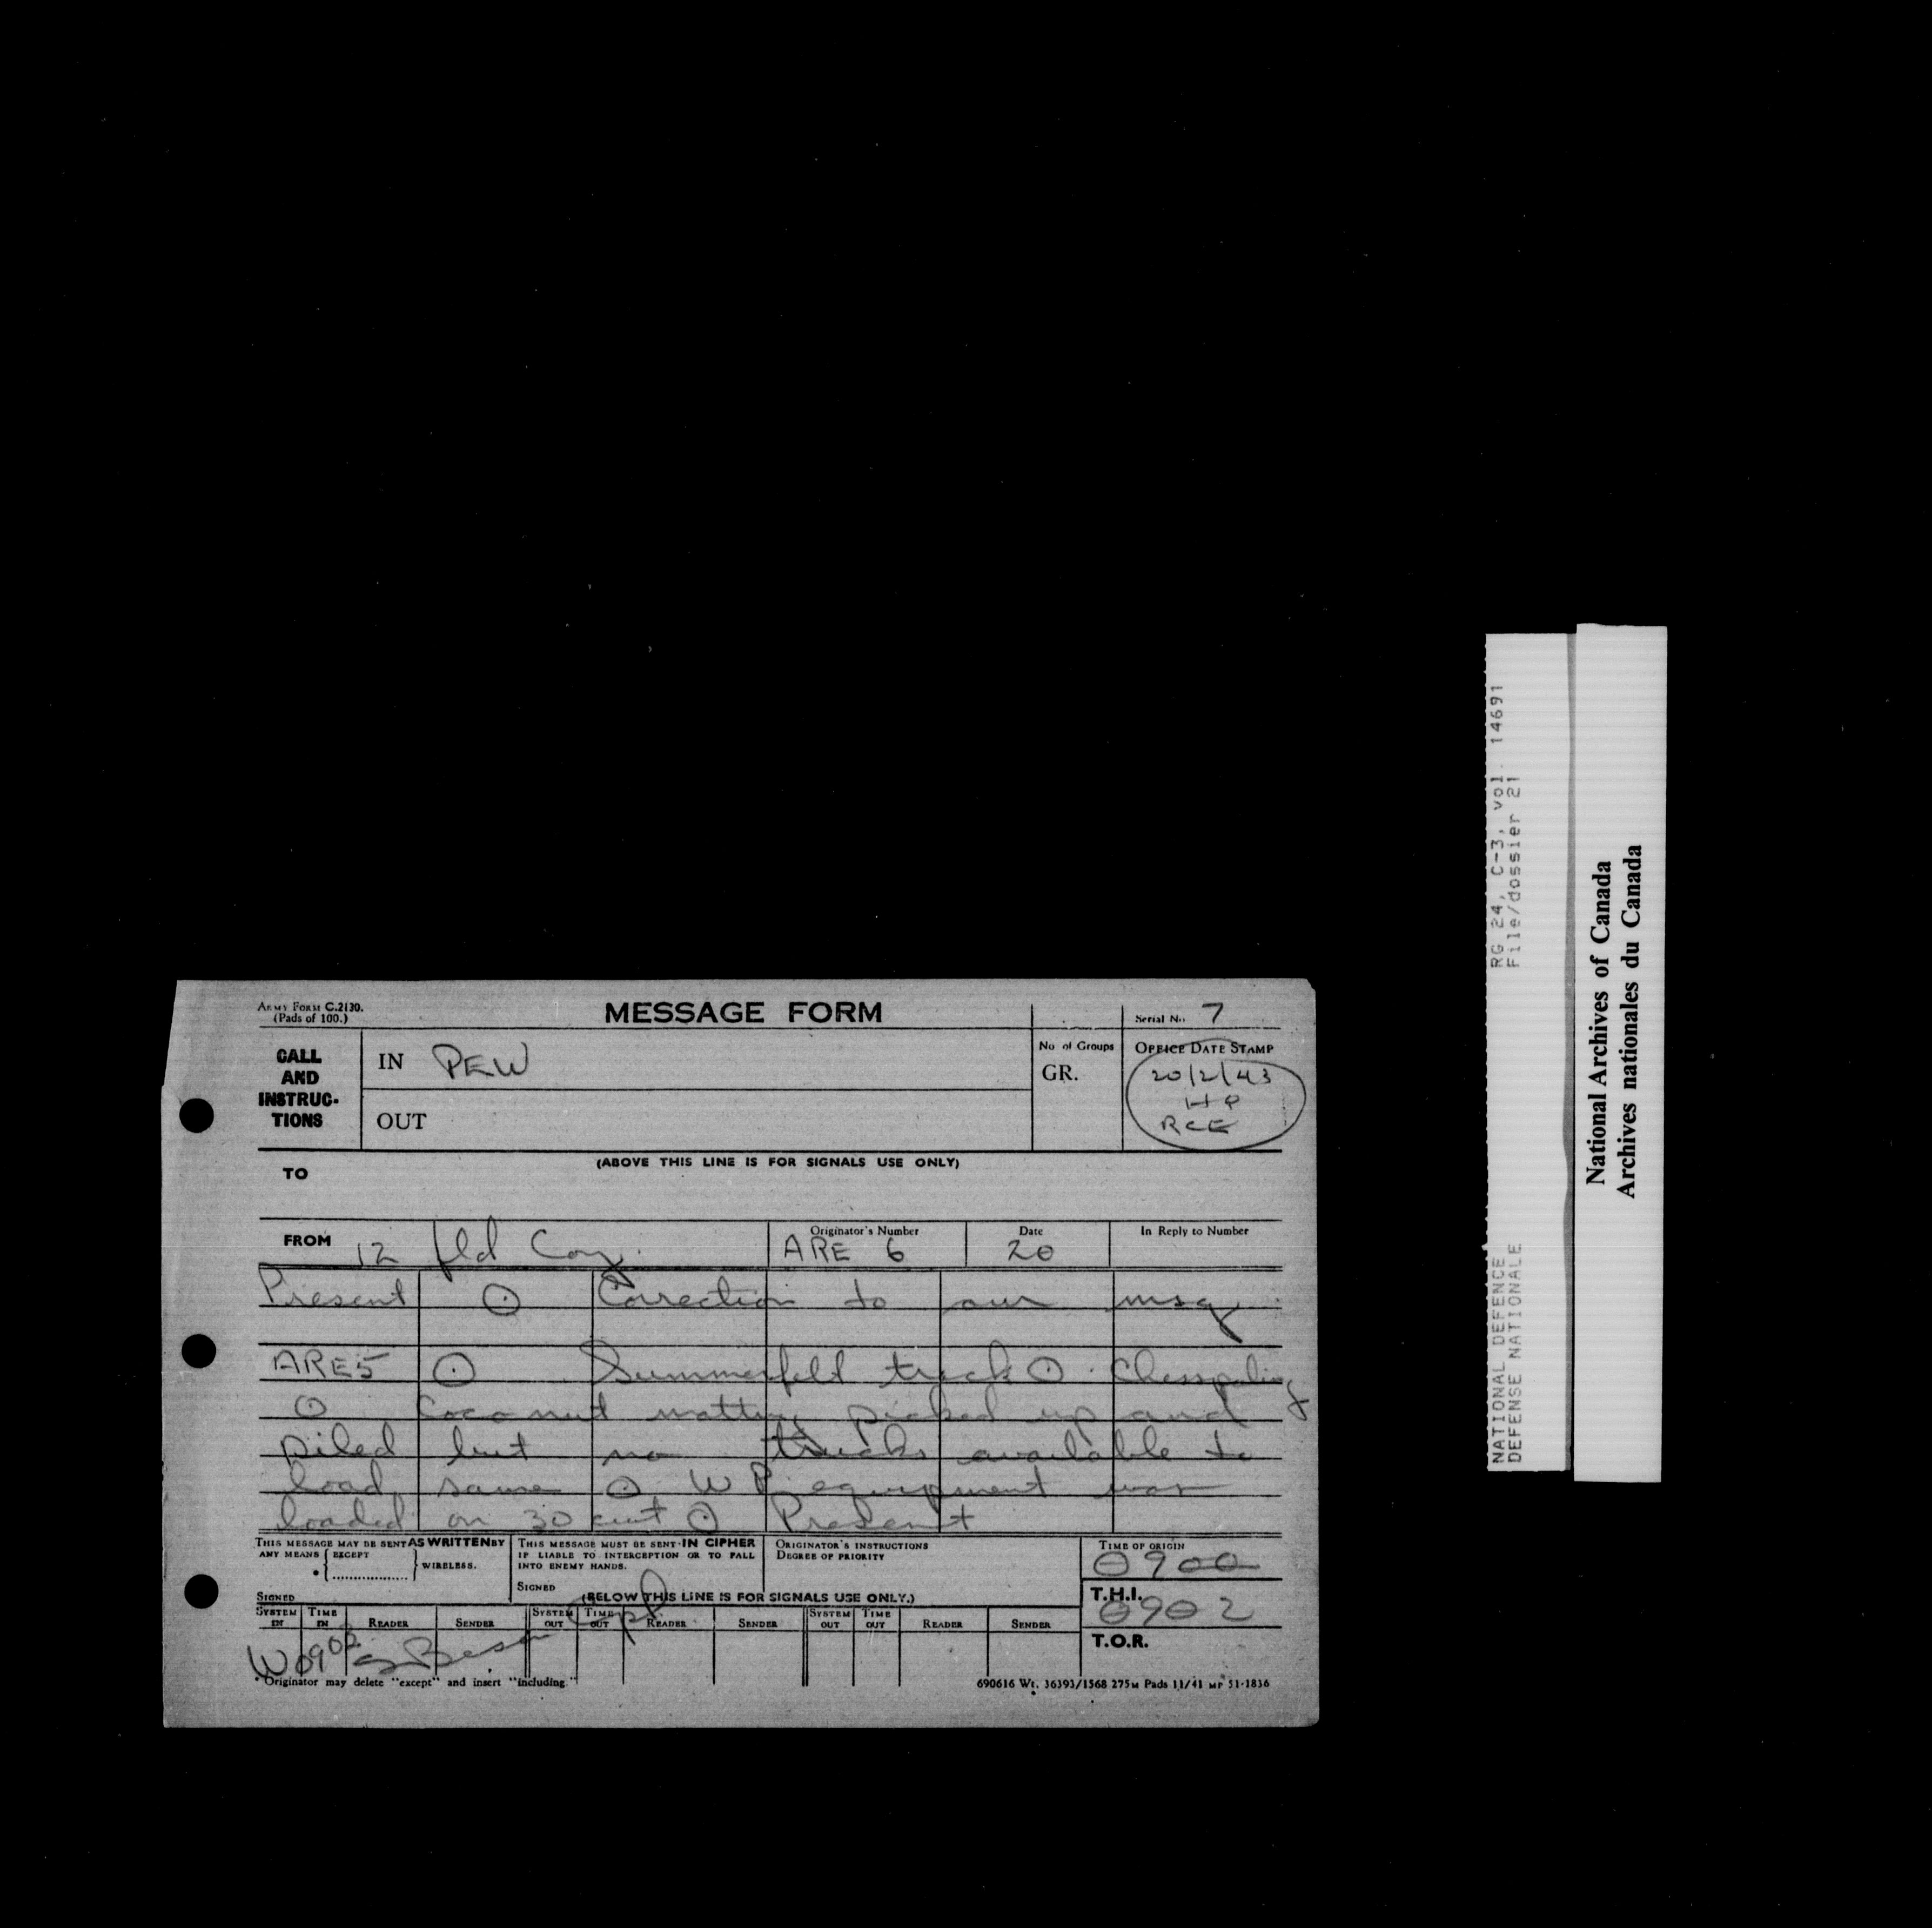 ARMY FORM C.2130.
(Pads of 100.)
MESSAGE FORM
Serial No. 7
CALL AND INSTRUC-TIONS
IN PEW
OUT
No of Groups
GR.
OFFICE DATE STAMP
20/2/43
HP
RCE
(ABOVE THIS LINE IS FOR SIGNALS USE ONLY)
TO
FROM 12 fld Coy.
Originator's Number
ARE 6
Date
20
In Reply to Number
Present ⊙ Correction to our msg
ARE5 ⊙ Summerfeld track ⊙ Chesspaling
⊙ Coconut matting picked up and
piled but no trucks available to
load same ⊙ W P equipment was
loaded on 30 cwt ⊙ Present
THIS MESSAGE MAY BE SENT AS WRITTEN BY
ANY MEANS { EXCEPT
* { .................. } WIRELESS.
SIGNED
THIS MESSAGE MUST BE SENT IN CIPHER
IF LIABLE TO INTERCEPTION OR TO FALL
INTO ENEMY HANDS.
SIGNED
ORIGINATOR'S INSTRUCTIONS
DEGREE OF PRIORITY
TIME OF ORIGIN
0900
T.H.I.
0902
T.O.R.
(BELOW THIS LINE IS FOR SIGNALS USE ONLY.)
SYSTEM IN TIME IN READER SENDER SYSTEM OUT TIME OUT READER SENDER SYSTEM OUT TIME OUT READER SENDER
W 0902 Cpl
* Originator may delete "except" and insert "including."
690616 Wt. 36393/1568 275M Pads 11/41 MP 51-1836
NATIONAL DEFENCE RG 24, C-3, vol. 14691
DEFENSE NATIONALE File/dossier 21
National Archives of Canada
Archives nationales du Canada